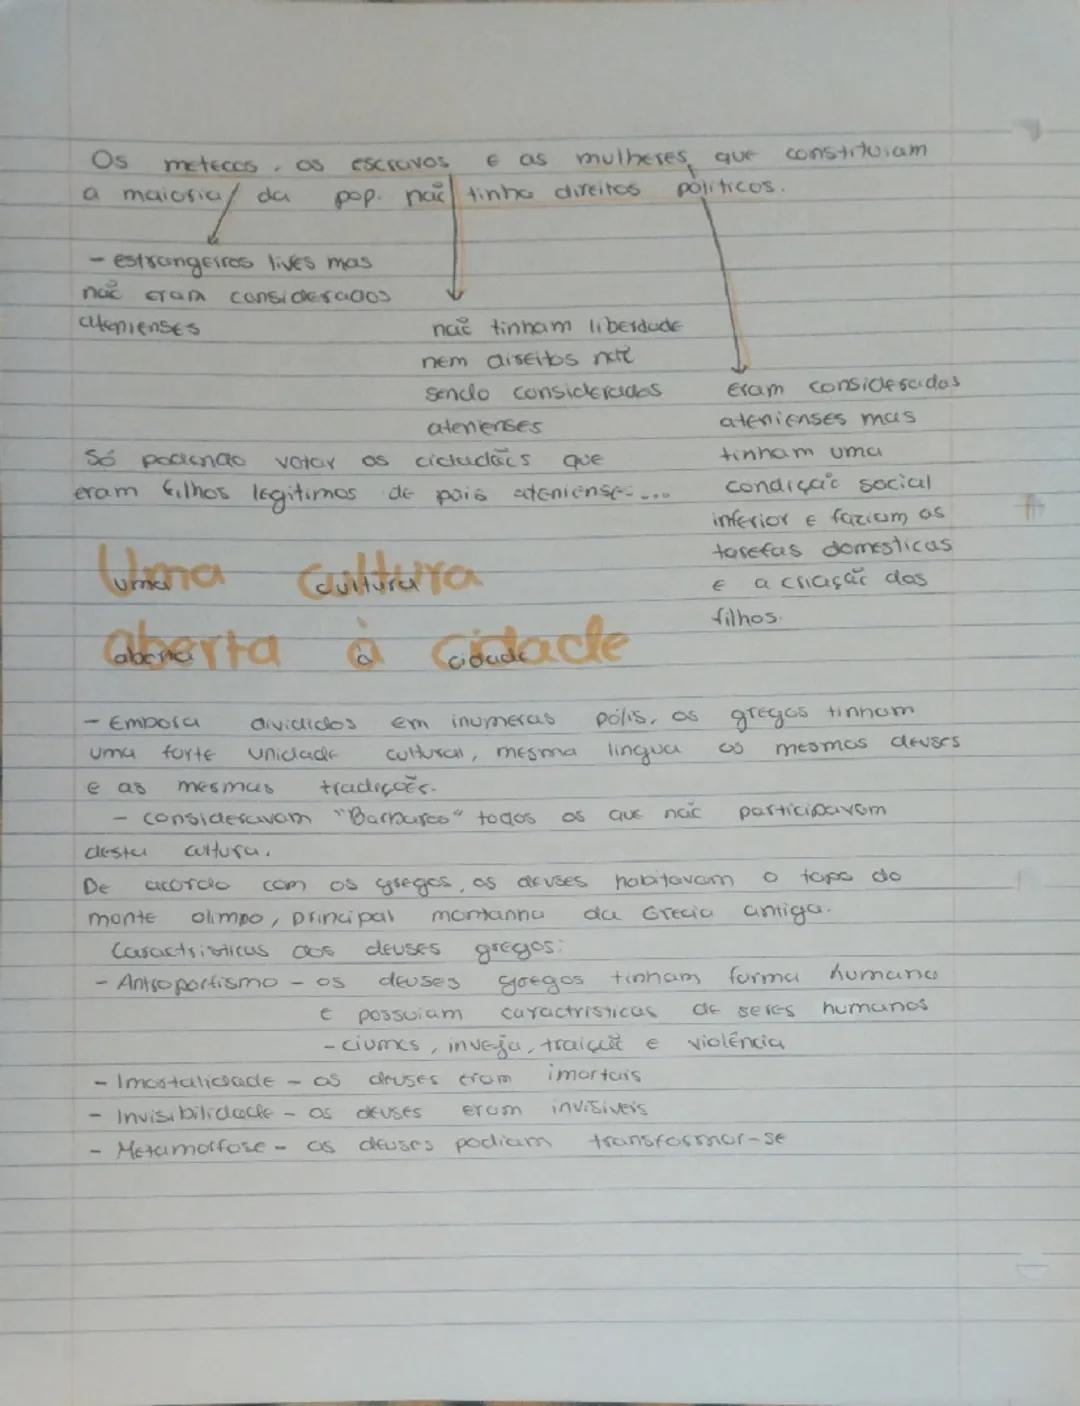 Os metecos, os escravos e as mulheres, que constituiam
a maioria da pop. não tinha direitos políticos.
- estrangeiros livres mas
não eram considerados
atenienses
não tinham liberdade
nem direitos não
sendo considerados
atenienses
eram consideradas
atenienses mas
tinham uma
condição social
inferior e faziam as
tarefas domesticas
e a criação dos
filhos.
Só podendo votar os cidadãos que
eram filhos legitimos de pais atenienses...
Uma cultura
aberta à cidade
- Embora divididos em inumeras pólis, os gregos tinham
uma forte unidade cultural, mesma lingua os mesmos deuses
e as mesmas tradições.
- consideravam "Barbaros" todos os que não participavam
desta cultura.
De acordo com os gregos, os deuses habitavam o topo do
monte olimpo, principal montanha da Grecia antiga.
Caractristicas dos deuses gregos:
- Antroporfismo - os deuses gregos tinham forma humana
e possuiam caractristicas de seres humanos
- ciumes, inveja, traição e violência
- Imortalidade - os deuses eram imortais
- Invisibilidade - os deuses eram invisiveis
- Metamorfose - os deuses podiam transformar-se